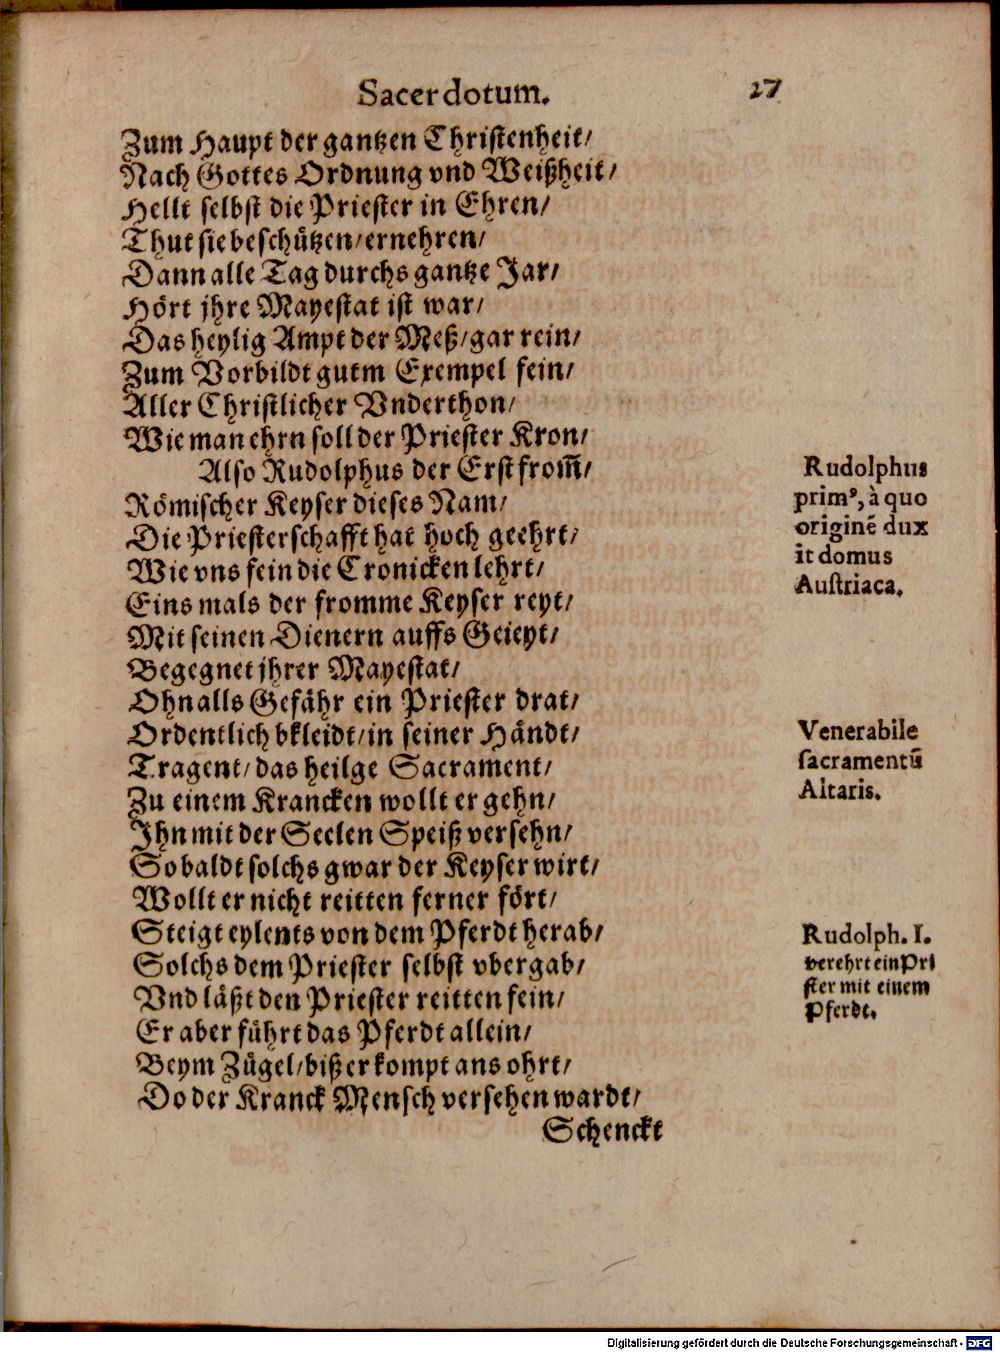 Sacerdotum. 27
Zum Haupt der gantzen Christenheit/
Nach Gottes Ordnung vnd Weißheit/
Hellt selbst die Priester in Ehren/
Thut sie beschützen/ernehren/
Dann alle Tag durchs gantze Jar/
Hört jhre Mayestat ist war/
Das heylig Ampt der Meß/gar rein/
Zum Vorbildt gutm Exempel fein/
Aller Christlicher Vnderthon/
Wie man ehrn soll der Priester Kron/
Also Rudolphus der Erst from̃/
Römischer Keyser dieses Nam/
Die Priesterschafft hat hoch geehrt/
Wie vns fein die Cronicken lehrt/
Eins mals der fromme Keyser reyt/
Mit seinen Dienern auffs Geieyt/
Begegnet jhrer Mayestat/
Ohnalls Gefähr ein Priester drat/
Ordentlich bkleidt/in seiner Händt/
Tragent/das heilge Sacrament/
Zu einem Krancken wollt er gehn/
Jhn mit der Seelen Speiß versehn/
So baldt solchs gwar der Keyser wirt/
Wollt er nicht reitten ferner fört/
Steigt eylents von dem Pferdt herab/
Solchs dem Priester selbst vbergab/
Vnd läßt den Priester reitten fein/
Er aber führt das Pferdt allein/
Beym Zügel/biß er kompt ans ohrt/
Do der Kranck Mensch versehen wardt/
Schenckt
Rudolphus
primꝰ, à quo
originẽ dux
it domus
Austriaca.
Venerabile
sacramentũ
Altaris.
Rudolph. I.
verehrt ein Pri
ster mit einem
Pferdt.
Digitalisierung gefördert durch die Deutsche Forschungsgemeinschaft - DFG